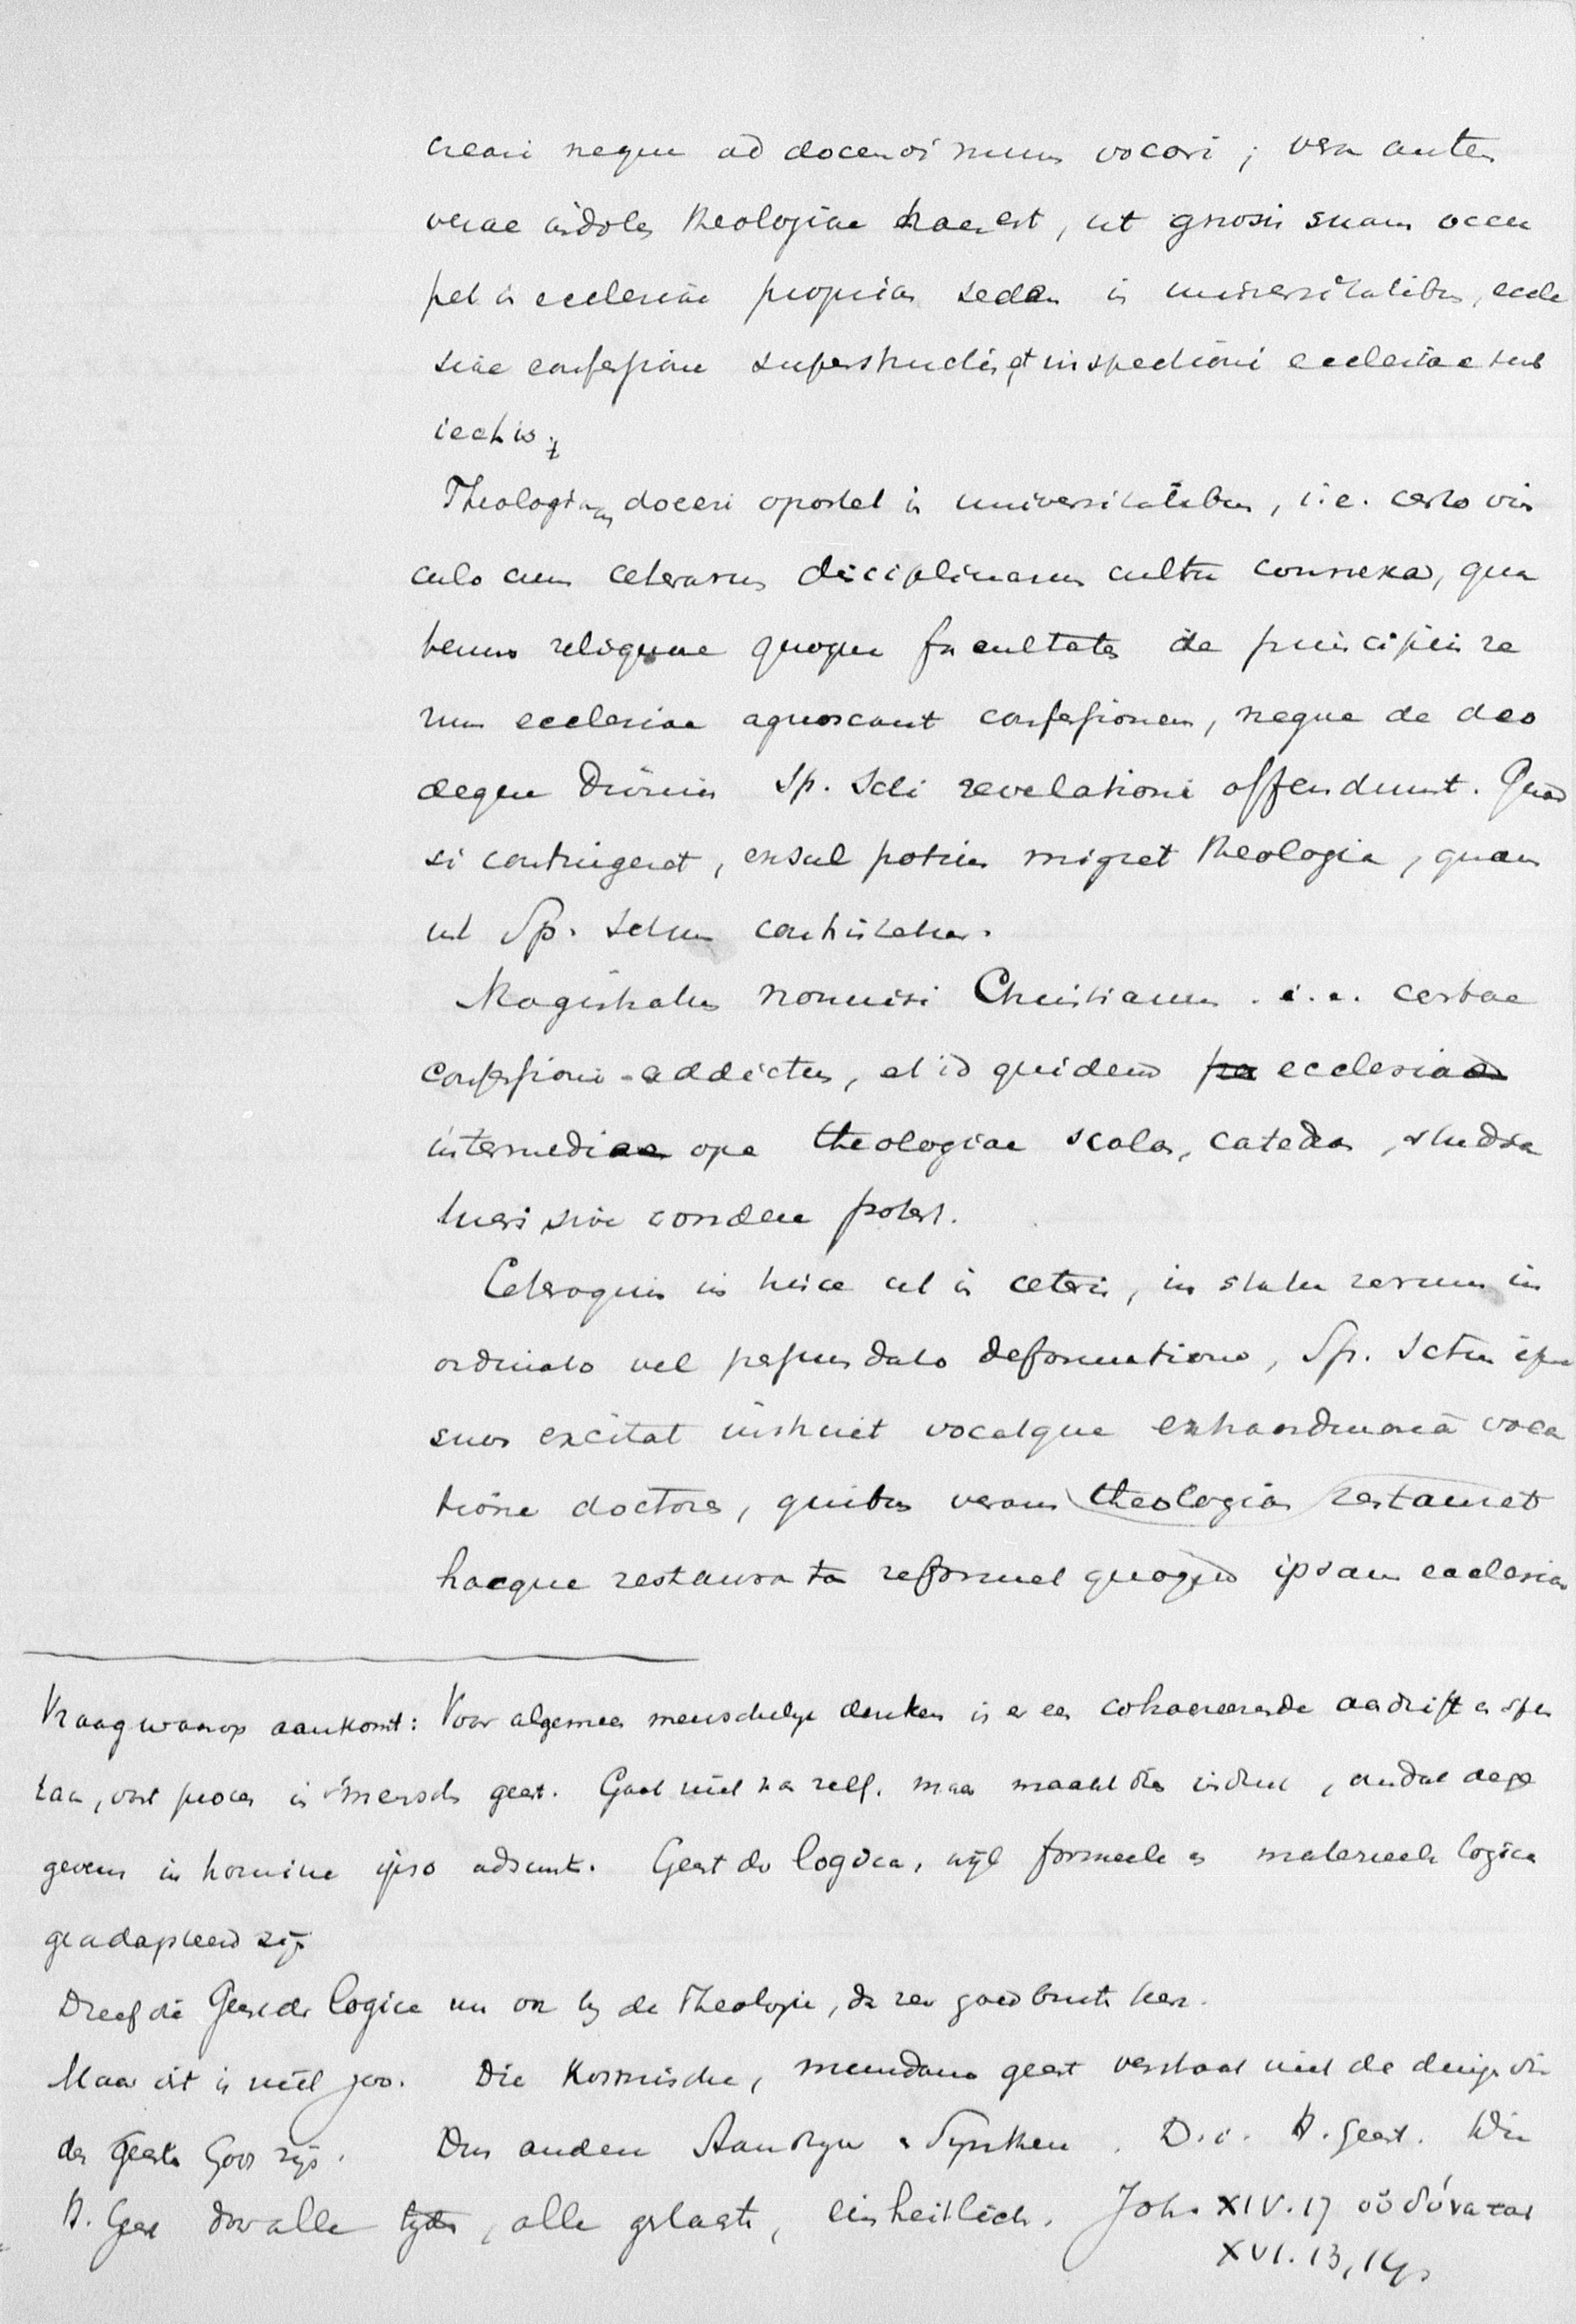 creari neque ad docendi munus vocari; vera autem
verae indoles theologiae haec est, ut gnosis suam occu
pet in ecclesia propriam sedem in universitatibus, eccle
siae confessione superstructis et inspectioni ecclesiae sub
iectis;
Theologiam doceri oportet in universitatibus, i.e. certo vin
culo cum ceterarum disciplinarum cultu connexa, qua
tenus reliquae quoque facultates de principiis re
rum ecclesiae agnoscant confessionem, neque de deo
deque divinis Sp. Scti revelationi offendunt. Quod
si contingeret, exsul potius migret theologia, quam
ut Sp. Sctum contristetur.
Magistratus nonnisi Christianus i.e. certae
confessioni addictus, et id quidem ecclesia
intermedia ope theologiae scolas, catedras, studia
tueri sive condere potest.
Ceteroquin in hisce ut in ceteris, in statu rerum in
ordinato vel pessundato deformatione, Sp. Sctus ipse
suos excitat instruit vocatque extraordinaria voca
tione doctores, quibus veram theologiam restauret
hacque restaurata reformet quoque ipsam ecclesiam
Vraag waarop aankomt: Voor algemeen menschelijk denken is er een cohaereerende aandrift en
, dat proces in mensch geest. Gaat niet van zelf, maar maakt dien indruk, omdat de ge
gevens in homine ipso adsunt. Geest der logica, wijl formeele en materieele logica
geadapteerd zijn
Dreef die Geest der logica nu ook bij de Theologie, dan zou goed best kan.
Maar dit is niet zoo. Die Kosmische, mundane geest verstaat niet de dingen die
des Geestes Gods zijn. Dus andere Aandrijver. D.i. H. Geest. Die
H. Geest door alle tijden, alle geslachten, einheitlich. Joh. XIV.17 οὐ δύναται
XVI. 13, 14